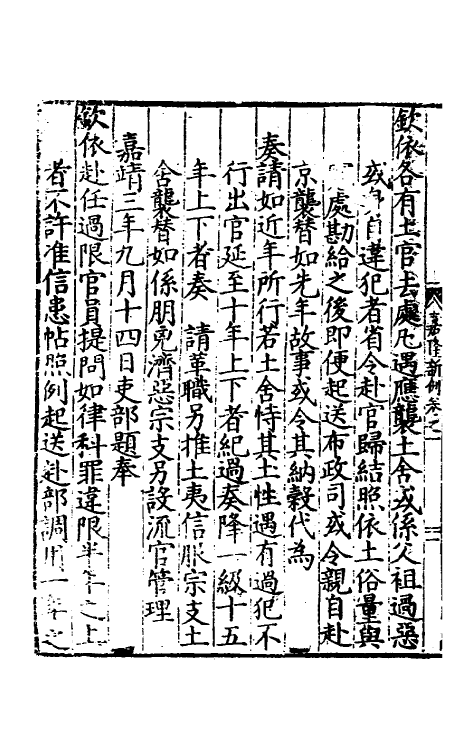 欽依各有土官去處凡遇應襲土舍或係父祖過惡
或自違犯者省令赴官歸結照依土俗量與
處勘給之後即便起送布政司或令親自赴
京襲替如先年故事或令其納穀代為
奏請如近年所行若土舍恃其土性遇有過犯不
行出官延至十年上下者紀過奏降一級十五
年上下者奏　請革職另推土夷信服宗支土
舍襲替如係朋兇濟惡宗支另設流官管理
嘉靖三年九月十四日吏部題奉
欽依赴任過限官員提問如律科罪違限半年之上
者不許准信患帖照例起送赴部調用一年之
嘉隆新例卷之
三